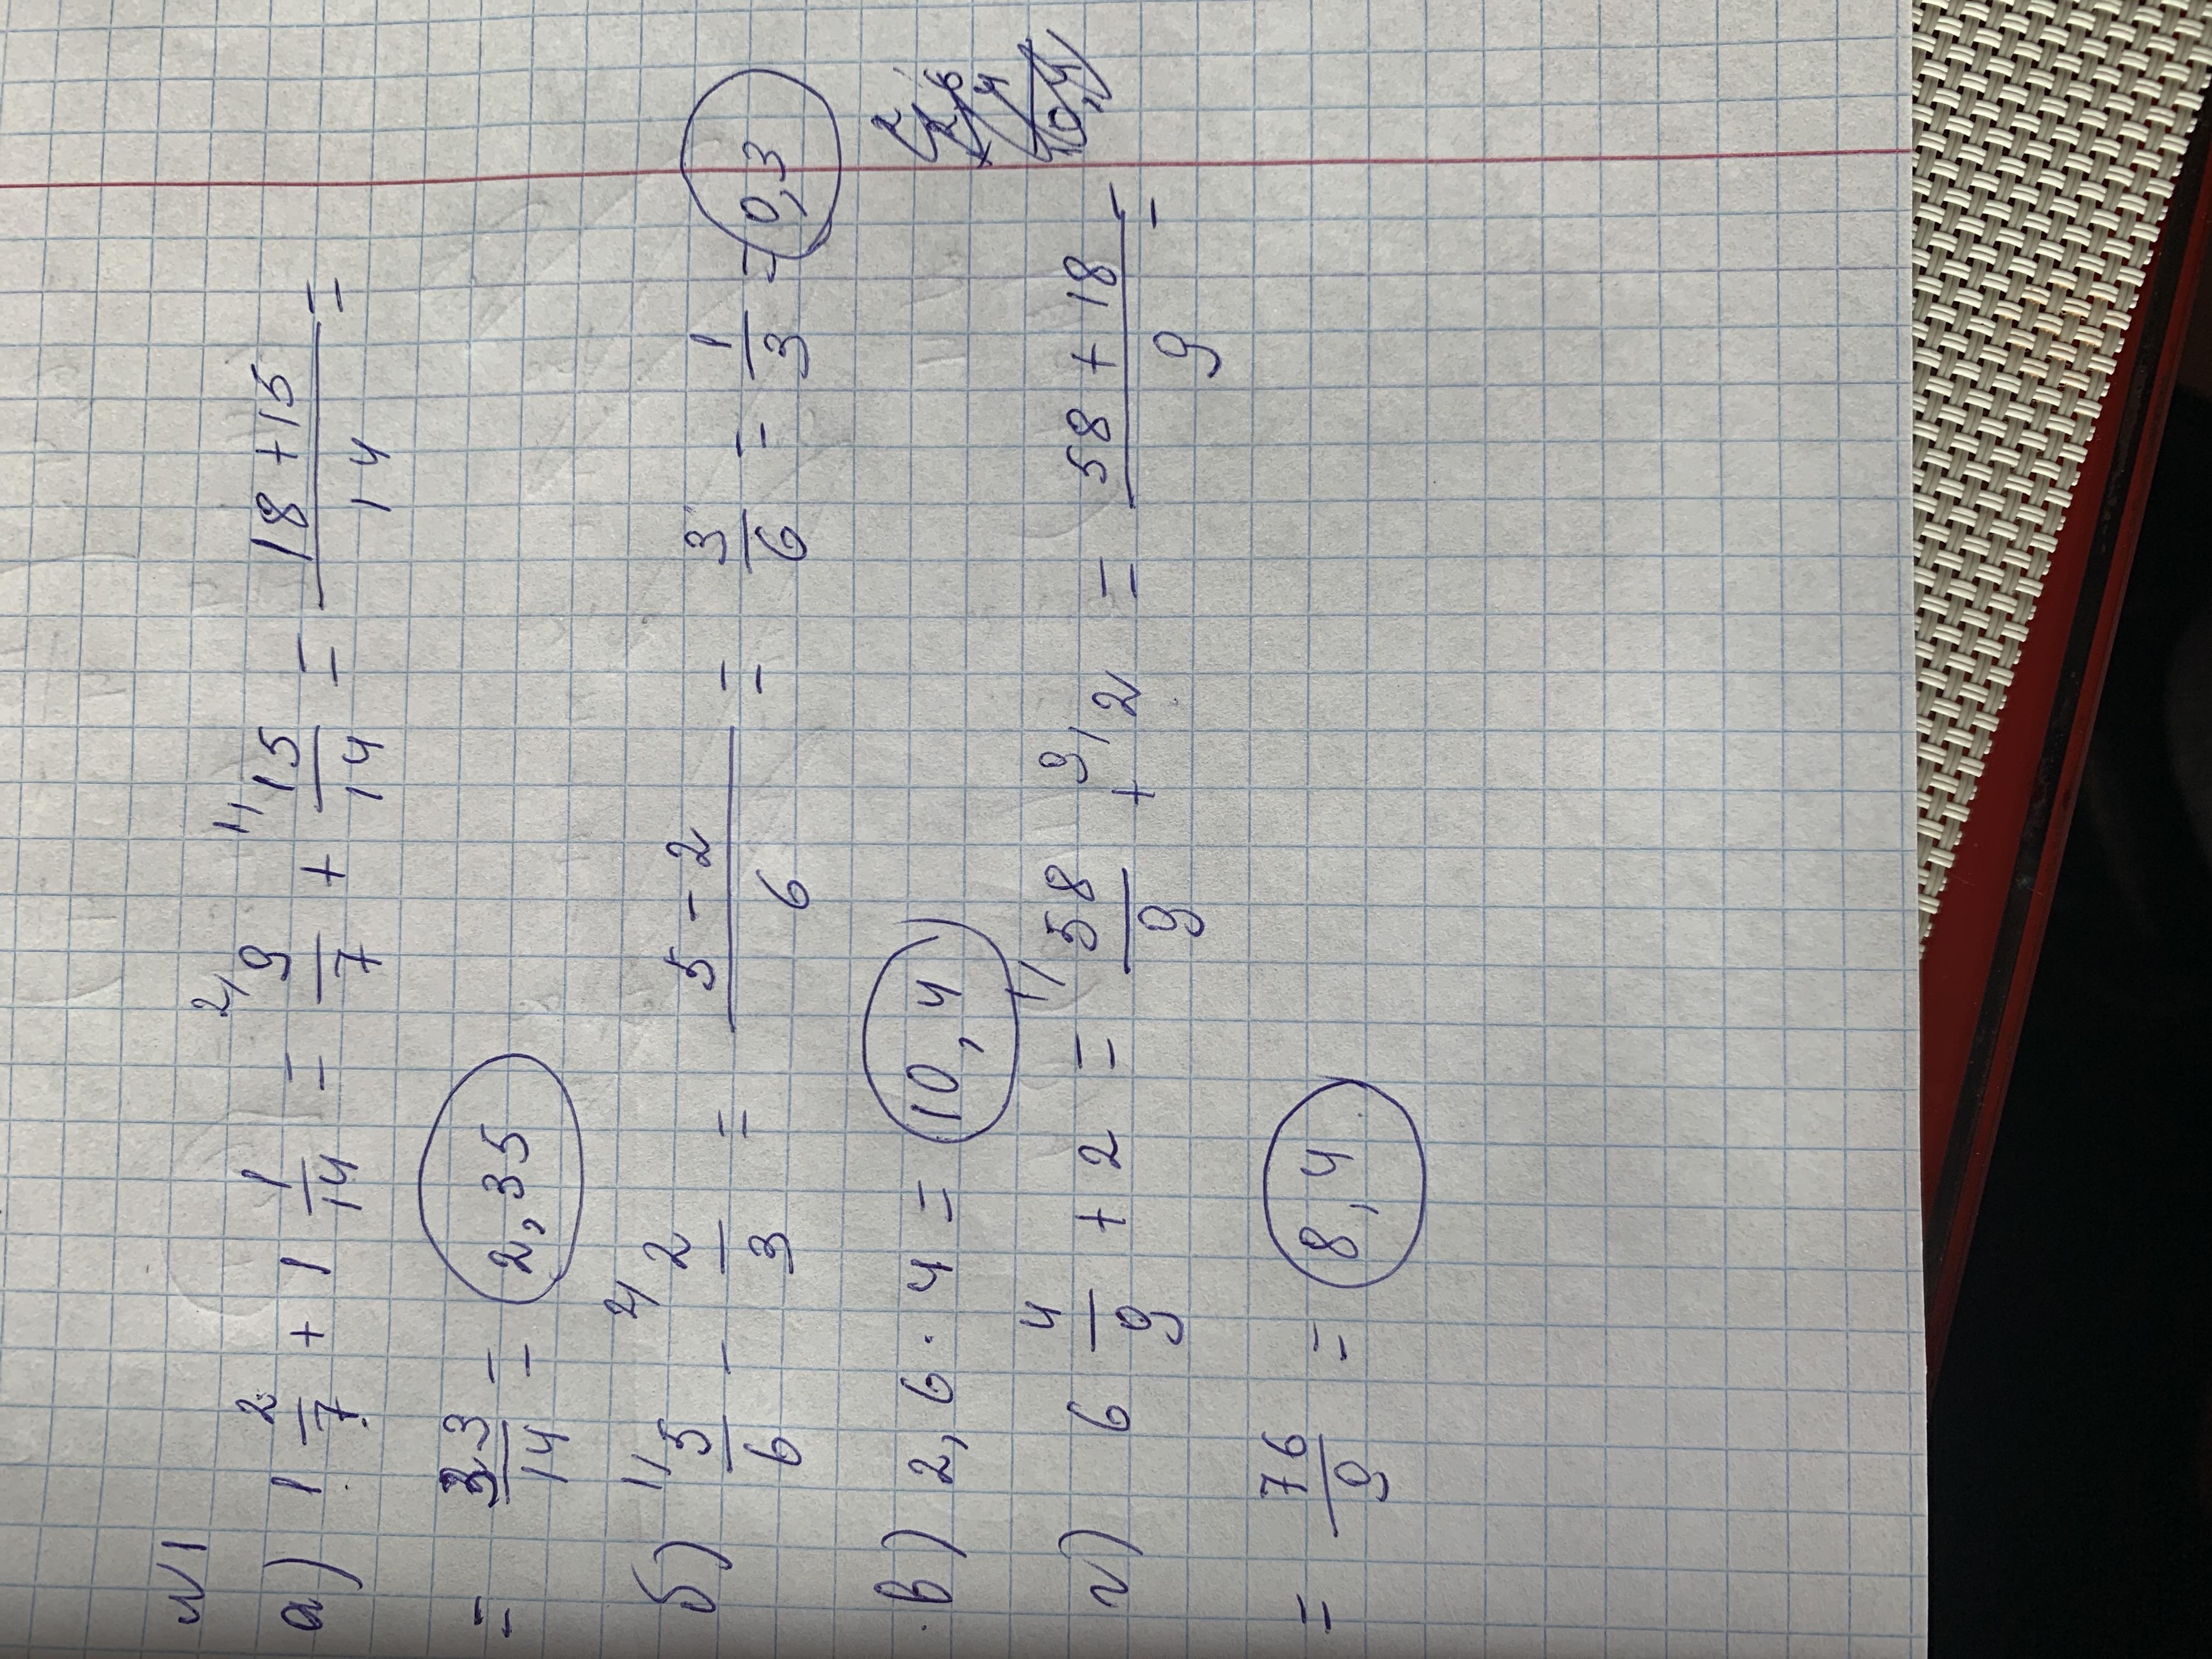 №1
а) 1 2/7 + 1 1/14 = 2/ 9/7 + 1/ 15/14 = (18+15)/14 =
= 33/14 = 2,35
б) 1/ 5/6 - 2/ 2/3 = (5-2)/6 = 3/6 = 1/3 = 0,3
в) 2,6 · 4 = 10,4
г) 6 4/9 + 2 = 1/ 58/9 + 9/ 2 = (58+18)/9 =
= 76/9 = 8,4